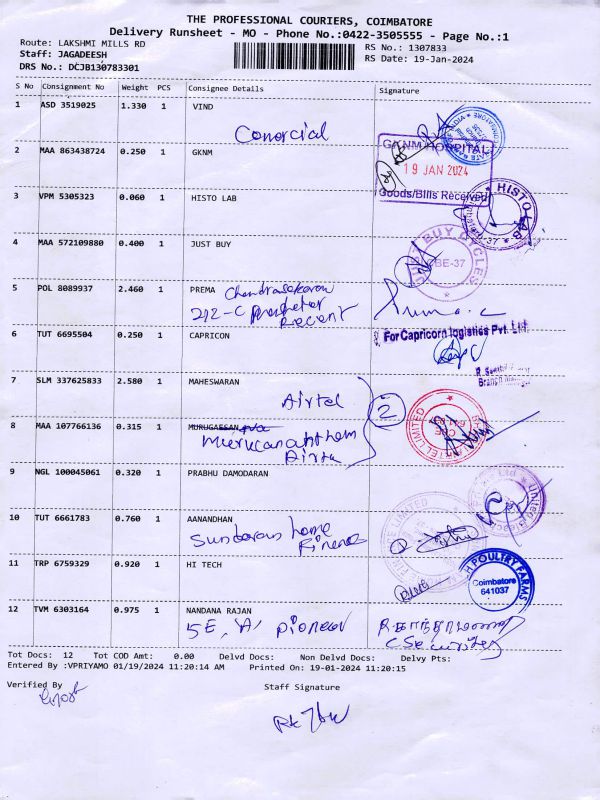 THE PROFESSIONAL COURIERS, COIMBATORE
Delivery Runsheet - MO - Phone No.:0422-3505555 - Page No.:1
Route: LAKSHMI MILLS RD
RS No.: 1307833
Staff: JAGADEESH
RS Date: 19-Jan-2024
DRS No.: DCJB130783301
S No Consignment No Weight PCS Consignee Details Signature
1 ASD 3519025 1.330 1 VIND
2 MAA 863438724 0.250 1 GKNM
GKNM HOSPITAL
19 JAN 2024
Goods/Bills Received
3 VPM 5305323 0.060 1 HISTO LAB
HISTO LAB
4 MAA 572109880 0.400 1 JUST BUY
BUY CYCLES
CBE-37
5 POL 8089937 2.460 1 PREMA Chandrasekaran
212-C
6 TUT 6695504 0.250 1 CAPRICON
For Capricorn logistics Pvt. Ltd.
7 SLM 337625833 2.580 1 MAHESWARAN
Airtel
2
8 MAA 107766136 0.315 1 MURUGAESAN
Airtel
9 NGL 100045061 0.320 1 PRABHU DAMODARAN
10 TUT 6661783 0.760 1 AANANDHAN
Sundaram home
Finance
11 TRP 6759329 0.920 1 HI TECH
H POULTRY FARMS
Coimbatore
641037
12 TVM 6303164 0.975 1 NANDANA RAJAN
5E, 'A' pioneer
Tot Docs: 12 Tot COD Amt: 0.00 Delvd Docs: Non Delvd Docs: Delvy Pts:
Entered By :VPRIYAMO 01/19/2024 11:20:14 AM Printed On: 19-01-2024 11:20:15
Verified By
Staff Signature